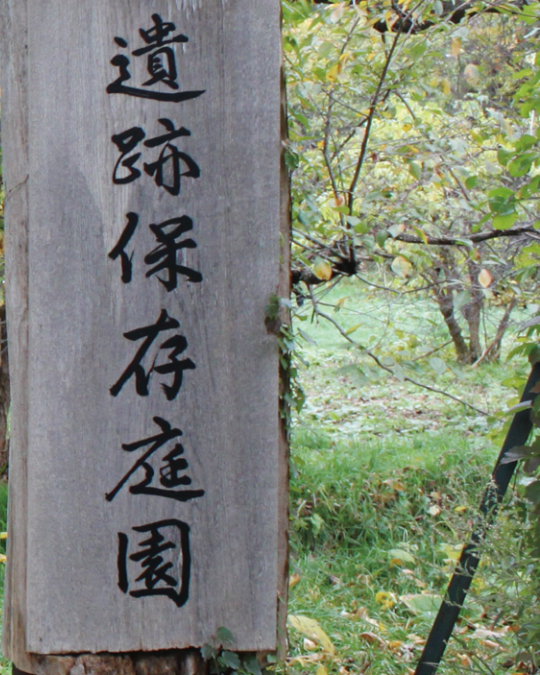 遺跡保存庭園